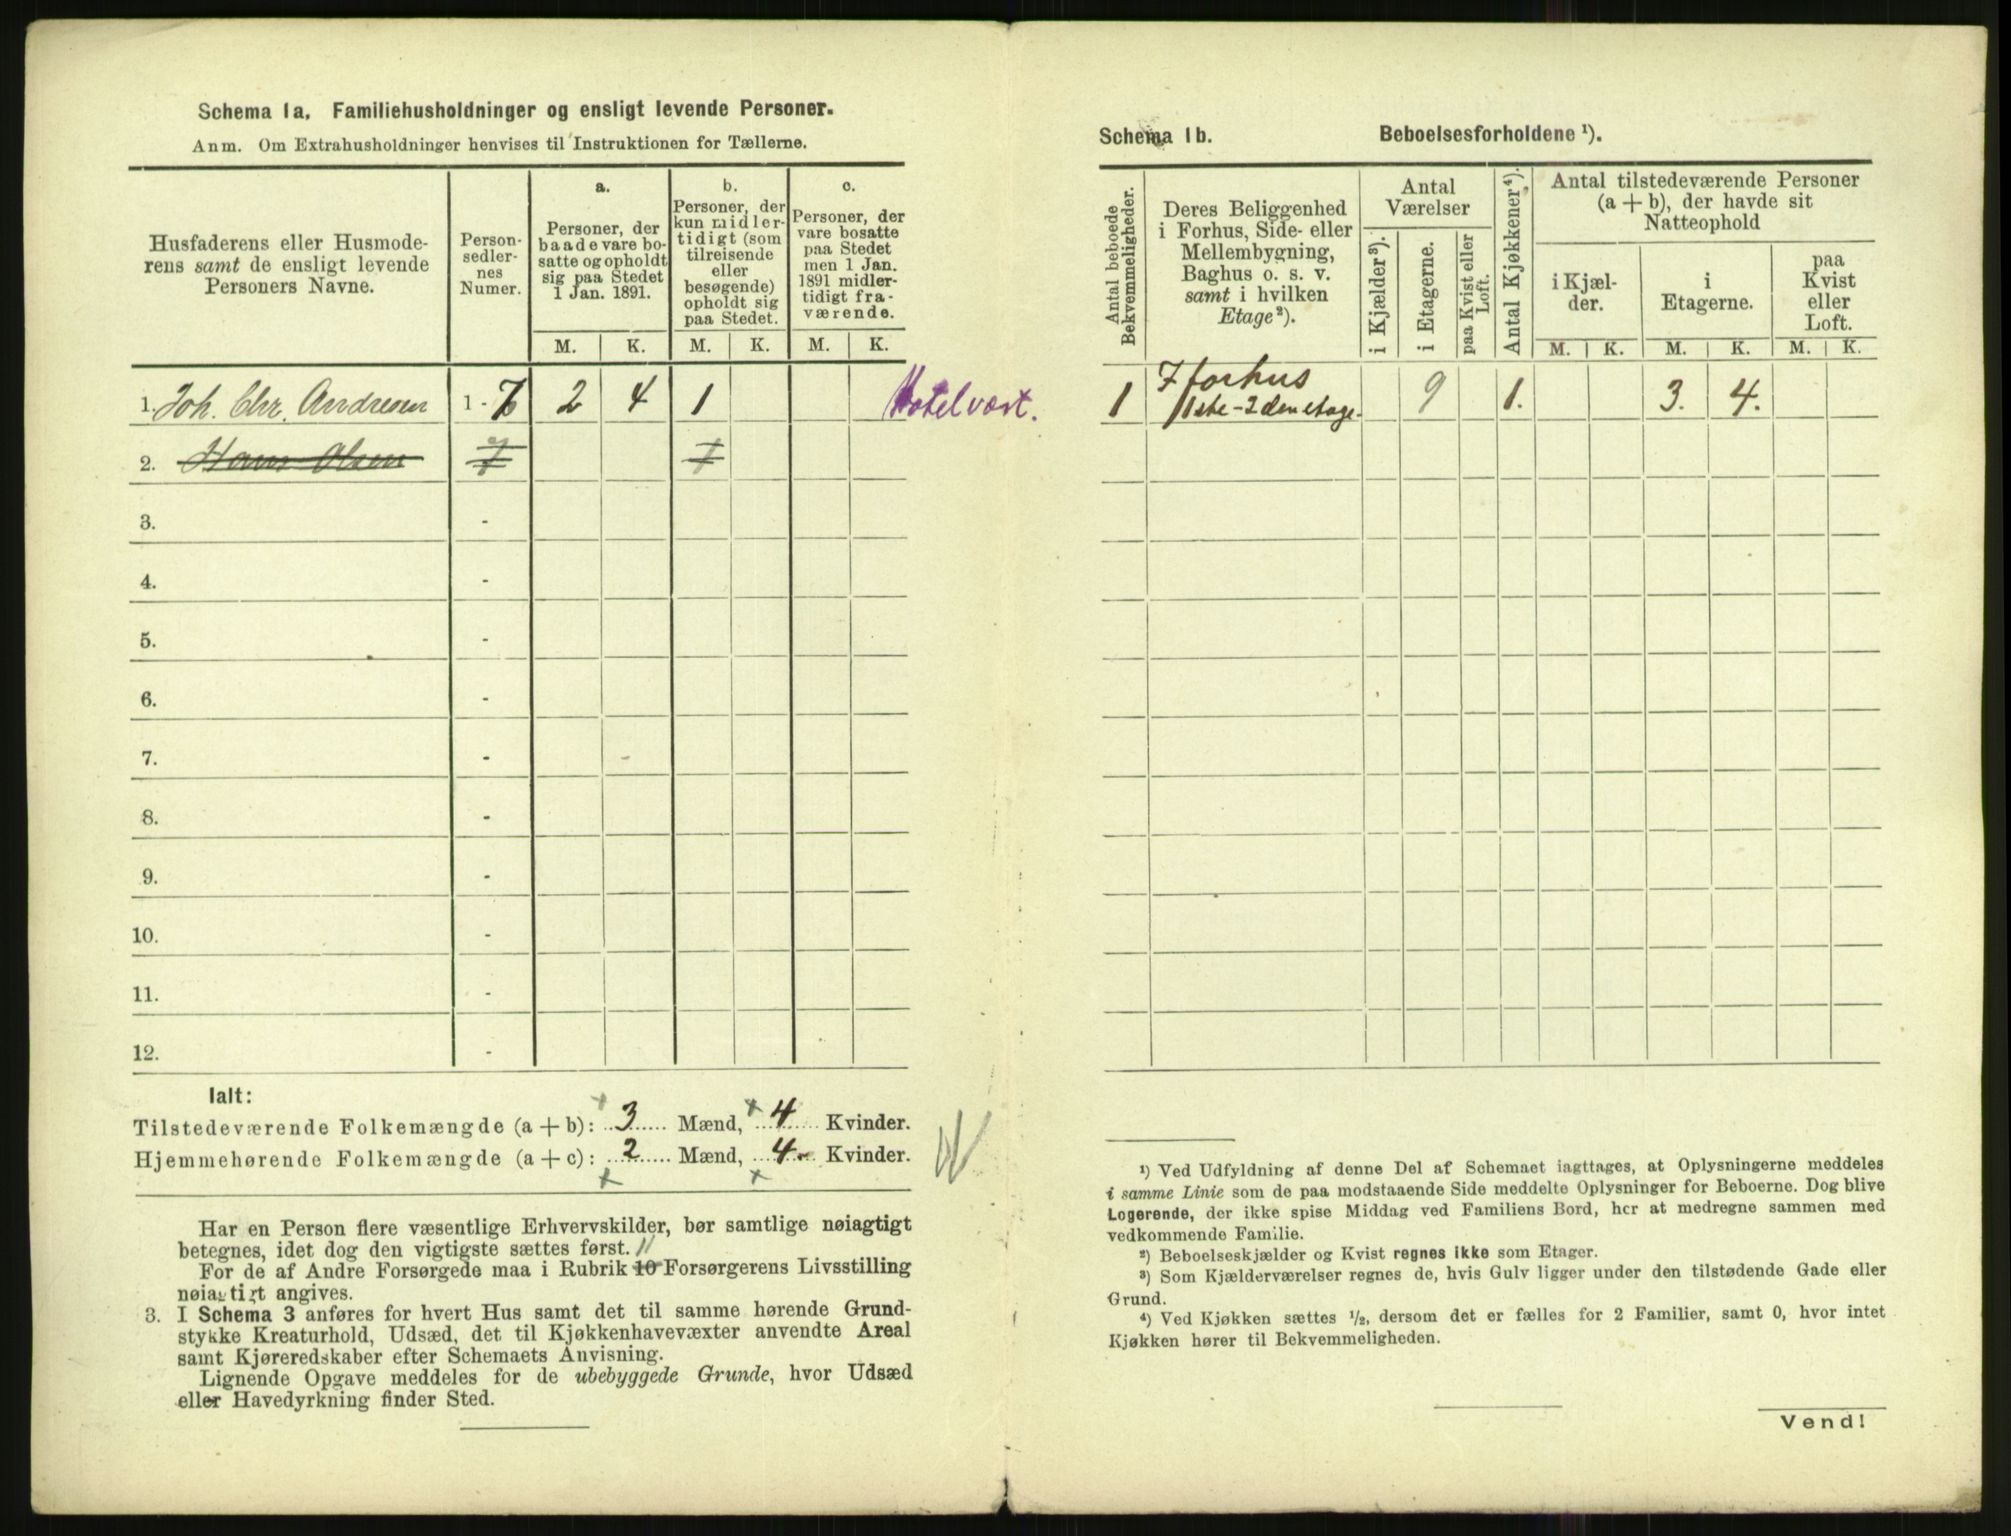 Schema 1a. Familiehusholdninger og ensligt levende Personer.
Anm. Om Extrahusholdninger henvises til Instruktionen for Tællerne.
Husfaderens eller Husmode-
rens samt de ensligt levende
Personers Navne.
Person-
sedler-
nes
Numer.
a.
Personer, der
baade vare bo-
satte og opholdt
sig paa Stedet
1 Jan. 1891.
b.
Personer, der
kun midler-
tidigt (som
tilreisende
eller
besøgende)
opholdt sig
paa Stedet.
c.
Personer, der
vare bosatte
paa Stedet
men 1 Jan.
1891 midler-
tidigt fra-
værende.
M. K. M. K. M. K.
1. Joh. Chr. Andresen 1 - 7 2 4 1 Hotelvært.
2. Hans Olsen 7 1
3. -
4. -
5. -
6. -
7. -
8. -
9. -
10. -
11. -
12. -
Ialt:
Tilstedeværende Folkemængde (a + b): 3 Mænd, 4 Kvinder.
Hjemmehørende Folkemængde (a + c): 2 Mænd, 4 Kvinder.
Har en Person flere væsentlige Erhvervskilder, bør samtlige nøiagtigt
betegnes, idet dog den vigtigste sættes først.
11
For de af Andre Forsørgede maa i Rubrik 10 Forsørgerens Livsstilling
nøiagtigt angives.
3. I Schema 3 anføres for hvert Hus samt det til samme hørende Grund-
stykke Kreaturhold, Udsæd, det til Kjøkkenhavevæxter anvendte Areal
samt Kjøreredskaber efter Schemaets Anvisning.
Lignende Opgave meddeles for de ubebyggede Grunde, hvor Udsæd
eller Havedyrkning finder Sted.
Schema 1b. Beboelsesforholdene ¹).
Antal beboede
Bekvemmeligheder.
Deres Beliggenhed
i Forhus, Side- eller
Mellembygning,
Baghus o. s. v.
samt i hvilken
Etage ²).
Antal
Værelser
i Kjælder ³).
i Etagerne.
paa Kvist eller
Loft.
Antal Kjøkkener ⁴).
Antal tilstedeværende Personer
(a + b), der havde sit
Natteophold
i Kjæl-
der.
i
Etagerne.
paa
Kvist
eller
Loft.
M. K. M. K. M. K.
1 Forhus
1ste - 2den etage. 9 1. 3. 4.
¹) Ved Udfyldning af denne Del af Schemaet iagttages, at Oplysningerne meddeles
i samme Linie som de paa modstaaende Side meddelte Oplysninger for Beboerne. Dog blive
Logerende, der ikke spise Middag ved Familiens Bord, her at medregne sammen med
vedkommende Familie.
²) Beboelseskjælder og Kvist regnes ikke som Etager.
³) Som Kjælderværelser regnes de, hvis Gulv ligger under den tilstødende Gade eller
Grund.
⁴) Ved Kjøkken sættes ½, dersom det er fælles for 2 Familier, samt 0, hvor intet
Kjøkken hører til Bekvemmeligheden.
Vend!